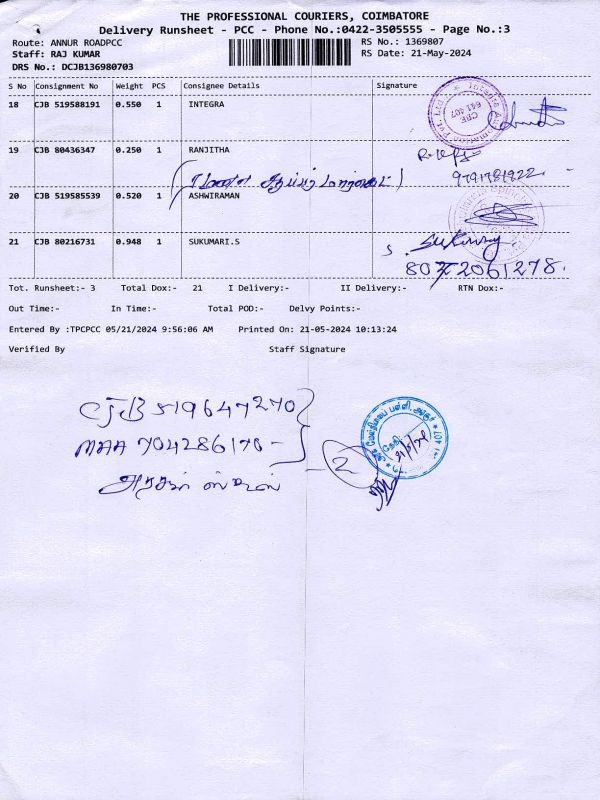 THE PROFESSIONAL COURIERS, COIMBATORE
Delivery Runsheet - PCC - Phone No.:0422-3505555 - Page No.:3
Route: ANNUR ROADPCC
RS No.: 1369807
Staff: RAJ KUMAR
RS Date: 21-May-2024
DRS No.: DCJB136980703
S No Consignment No Weight PCS Consignee Details Signature
18 CJB 519588191 0.550 1 INTEGRA
CBE
641 407
19 CJB 80436347 0.250 1 RANJITHA
9791781922
20 CJB 519585539 0.520 1 ASHWIRAMAN
21 CJB 80216731 0.948 1 SUKUMARI.S
Tot. Runsheet:- 3 Total Dox:- 21 I Delivery:- II Delivery:- RTN Dox:-
Out Time:- In Time:- Total POD:- Delvy Points:-
Entered By :TPCPCC 05/21/2024 9:56:06 AM Printed On: 21-05-2024 10:13:24
Verified By Staff Signature
CJB 519647270
MAA 704286170 -
2